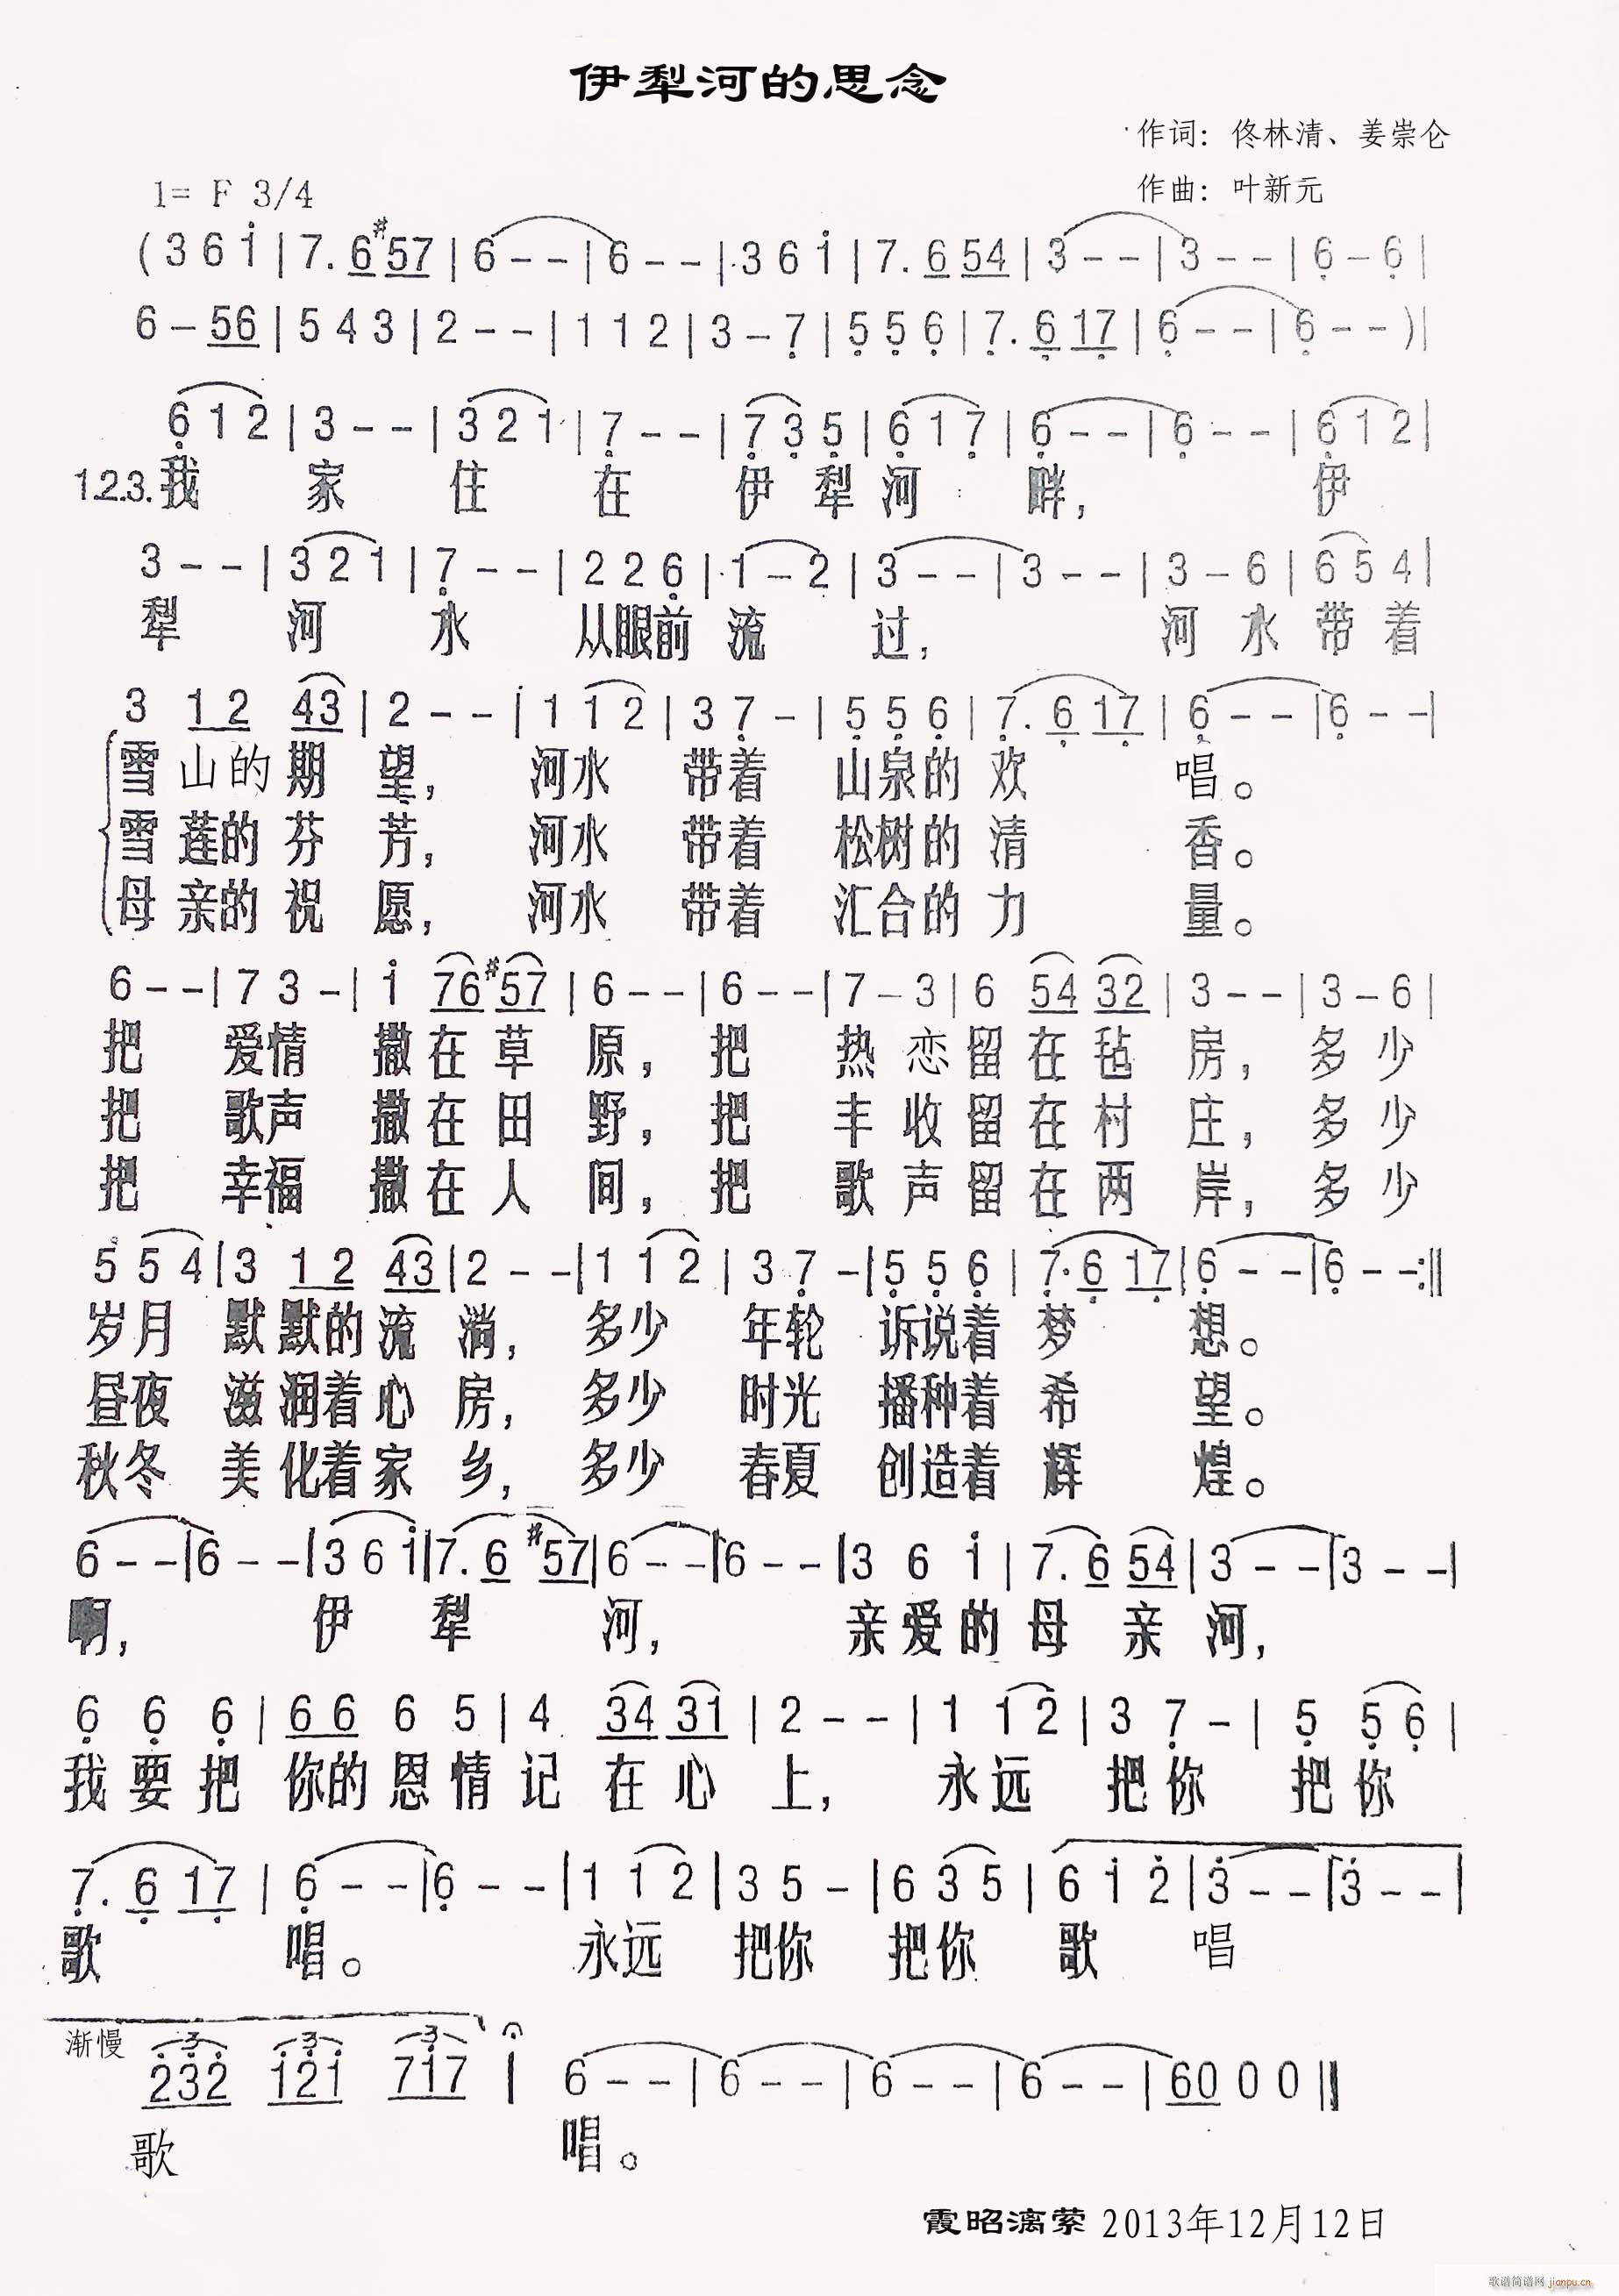 伊犁河的思念
作词：佟林清、姜崇仑
1= F 3/4
作曲：叶新元
(3 6 i | 7. 6 #57 | 6 - - | 6 - - | 3 6 i | 7. 6 54 | 3 - - | 3 - - | 6 - 6 |
6 - 56 | 5 4 3 | 2 - - | 1 1 2 | 3 - 7 | 5 5 6 | 7. 6 17 | 6 - - | 6 - - )|
6 1 2 | 3 - - | 3 2 1 | 7 - - | 7 3 5 | 6 1 7 | 6 - - | 6 - - | 6 1 2 |
1.2.3.我 家 住 在 伊 犁 河 畔， 伊
3 - - | 3 2 1 | 7 - - | 2 2 6 | 1 - 2 | 3 - - | 3 - - | 3 - 6 | 6 5 4 |
犁 河 水 从眼前 流 过， 河 水 带 着
3 12 43 | 2 - - | 1 1 2 | 3 7 - | 5 5 6 | 7. 6 17 | 6 - - | 6 - - |
雪 山的 期 望， 河水 带着 山泉的 欢 唱。
雪 莲的 芬 芳， 河水 带着 松树的 清 香。
母 亲的 祝 愿， 河水 带着 汇合的 力 量。
6 - - | 7 3 - | i 76 #57 | 6 - - | 6 - - | 7 - 3 | 6 54 32 | 3 - - | 3 - 6 |
把 爱情 撒 在 草 原， 把 热 恋 留 在 毡 房， 多 少
把 歌声 撒 在 田 野， 把 丰 收 留 在 村 庄， 多 少
把 幸福 撒 在 人 间， 把 歌 声 留 在 两 岸， 多 少
5 5 4 | 3 12 43 | 2 - - | 1 1 2 | 3 7 - | 5 5 6 | 7. 6 17 | 6 - - | 6 - - :||
岁月 默 默的 流 淌， 多少 年轮 诉说着 梦 想。
昼夜 滋 润着 心 房， 多少 时光 播种着 希 望。
秋冬 美 化着 家 乡， 多少 春夏 创造着 辉 煌。
6 - - | 6 - - | 3 6 i | 7. 6 #57 | 6 - - | 6 - - | 3 6 i | 7. 6 54 | 3 - - | 3 - - |
啊， 伊 犁 河， 亲 爱 的 母 亲 河，
6 6 6 | 66 6 5 | 4 34 31 | 2 - - | 1 1 2 | 3 7 - | 5 5 6 |
我 要 把 你的 恩 情 记 在 心 上， 永 远 把 你 把 你
7. 6 17 | 6 - - | 6 - - | 1 1 2 | 3 5 - | 6 3 5 | 6 i 2 | 3 - - | 3 - - |
歌 唱。 永远 把你 把你 歌 唱
渐慢 232 121 717 | 6 - - | 6 - - | 6 - - | 6 - - | 60 0 0 ||
3 3 3
歌 唱。
霞昭漓萦 2013年12月12日
歌谱简谱网 jianpu.cn